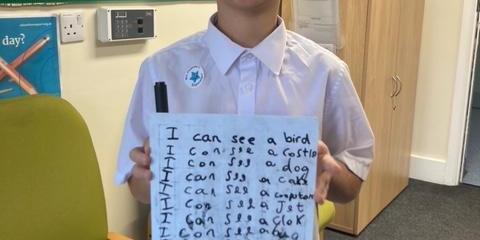 day?
I can see a bird
I con see a costle
I con see a dog
I can see a cake
I can see a computer
I con see a Jet
I can see a clok
I con see a bug